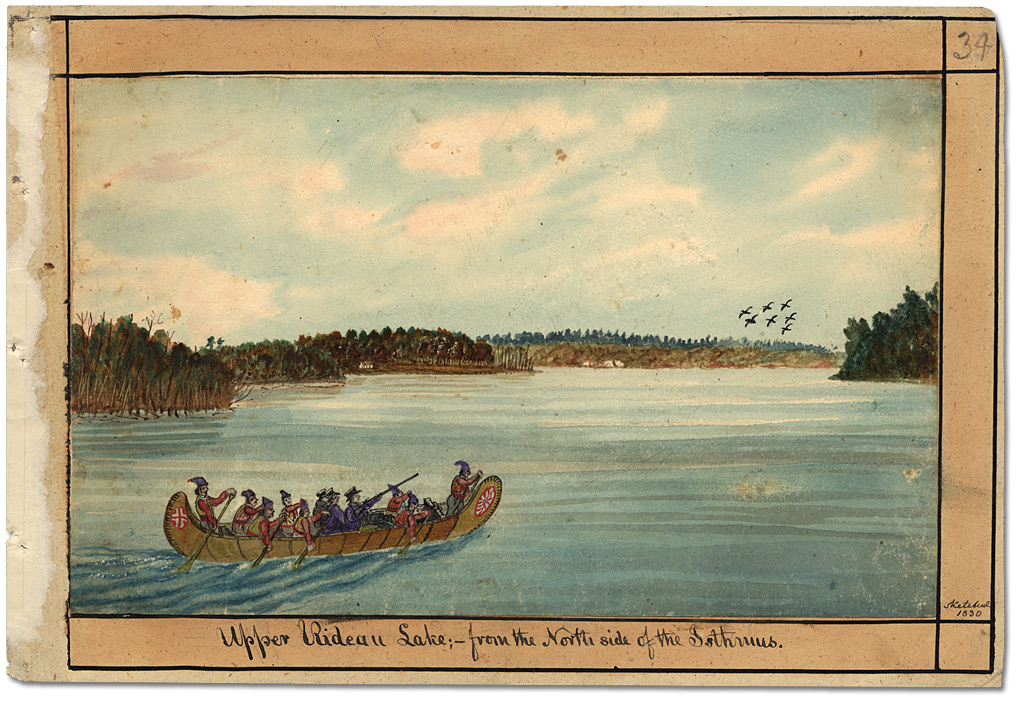 34
sketched
1830
Upper Rideau Lake;- from the North side of the Isthmus.